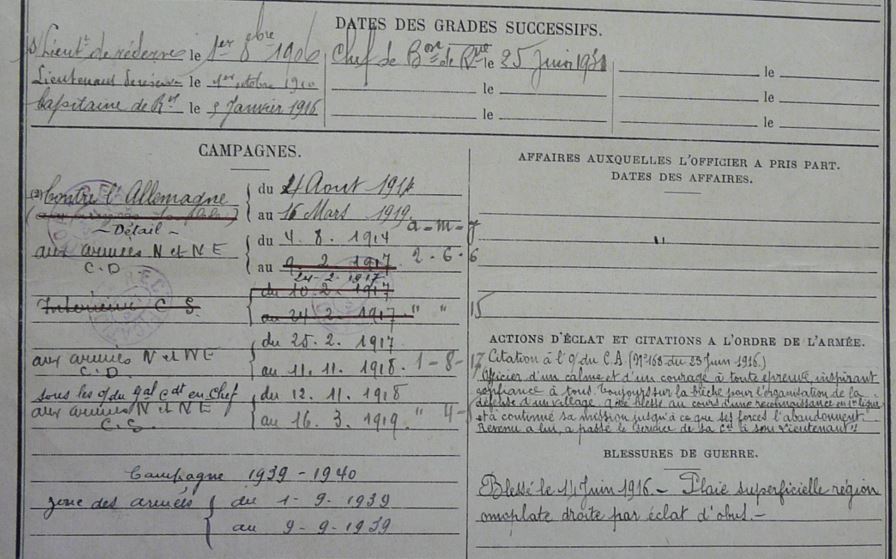 DATES DES GRADES SUCCESSIFS.
Lieut. de réserve le 1er 8bre 1906
Chef de Bon de Rve le 25 Juin 1931
le
Lieutenant de réserve le 1er octobre 1910
le
le
Capitaine de Rve le 5 Janvier 1916
le
le
CAMPAGNES.
(2) Contre l'Allemagne
du 4 Aout 1914
au 16 Mars 1919.
a - m - j
~ Détail ~
aux armées N et NE
C.D
du 4. 8. 1914
au 9. 2. 1917
2 - 6 - 6
24 - 2 - 1917
Intérieur C S.
du 10 2. 1917
au 24 2. 1917. " " 15
aux armées N et NE
C.D.
du 25. 2. 1917.
au 11. 11. 1918. 1 - 8 - 17
sous les o/ du gal Cdt en Chef
aux armées N et NE
C.S.
du 12. 11. 1918
au 16. 3. 1919. " 4 - 5
Campagne 1939 - 1940
zone des armées
du 1 - 9. 1939
au 9 - 9 - 1939
AFFAIRES AUXQUELLES L'OFFICIER A PRIS PART.
DATES DES AFFAIRES.
"
ACTIONS D'ÉCLAT ET CITATIONS A L'ORDRE DE L'ARMÉE.
Citation à l'o/ du C.A (N° 168 du 23 Juin 1916.)
Officier d'un calme et d'un courage à toute épreuve, inspirant
confiance à tous. Toujours sur la brèche pour l'organisation de la
défense d'un village. a été blessé au cours d'une reconnaissance en 1e ligne
et a continué sa mission jusqu'à ce que ses forces l'abandonnent.
Revenu a lui, a passé le service de sa Cie à son Lieutenant"
BLESSURES DE GUERRE.
Blessé le 14 Juin 1916. - Plaie superficielle région
omoplate droite par éclat d'obus. -